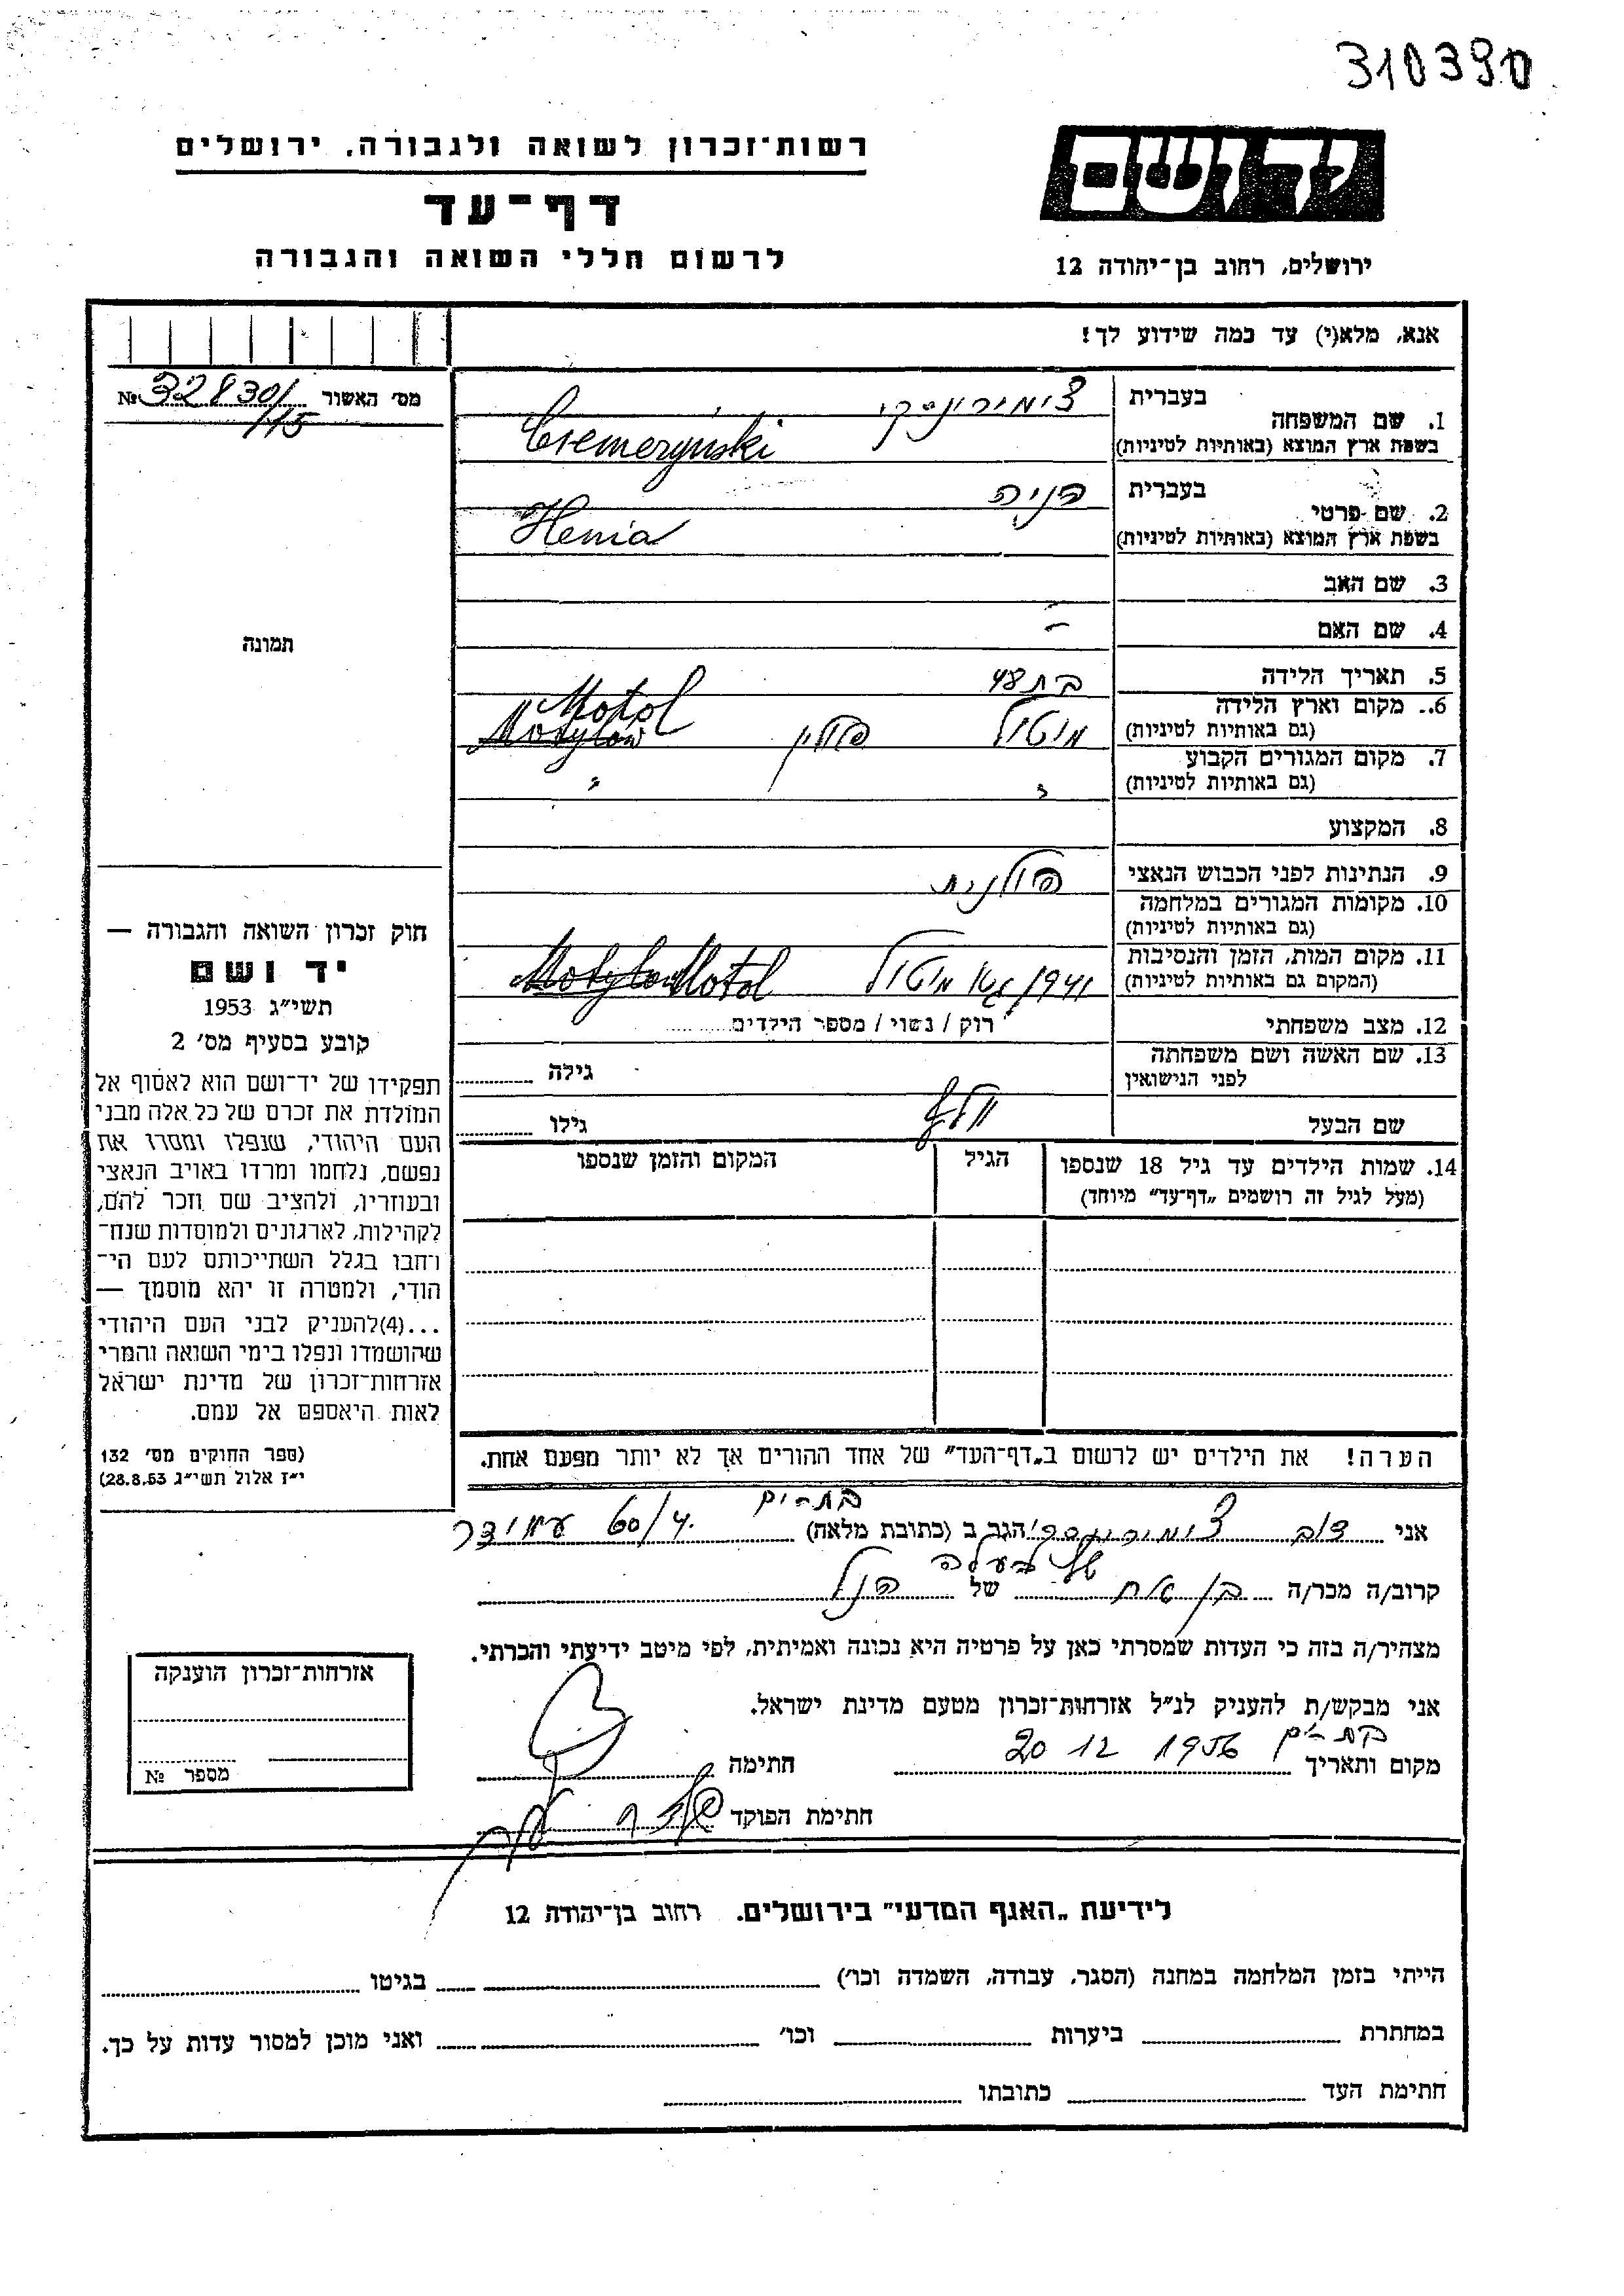 310390
רשות־זכרון לשואה ולגבורה, ירושלים
ידושם
דף־עד
לרשום חללי השואה והגבורה
ירושלים, רחוב בן־יהודה 12
אנא, מלא(י) עד כמה שידוע לך!
מס׳ האשור № 32830/
115
בעברית
1. שם המשפחה
בשפת ארץ המוצא (באותיות לטיניות) Cremerynski
בעברית הניה
2. שם פרטי
בשפת ארץ המוצא (באותיות לטיניות) Henia
3. שם האב
4. שם האם –
תמונה
5. תאריך הלידה בת 48
6. מקום וארץ הלידה
(גם באותיות לטיניות) מוטול פולין Motylow Motol
7. מקום המגורים הקבוע
(גם באותיות לטיניות) " "
8. המקצוע
9. הנתינות לפני הכבוש הנאצי פולנית
10. מקומות המגורים במלחמה
(גם באותיות לטיניות)
11. מקום המות, הזמן והנסיבות
(המקום גם באותיות לטיניות) 1941 גטו מוטול Motylow Motol
12. מצב משפחתי רוק / נשוי / מספר הילדים
13. שם האשה ושם משפחתה
לפני הנישואין גילה
שם הבעל גילו
14. שמות הילדים עד גיל 18 שנספו
(מעל לגיל זה רושמים „דף־עד" מיוחד)
הגיל
המקום והזמן שנספו
חוק זכרון השואה והגבורה —
יד ושם
תשי״ג 1953
קובע בסעיף מס׳ 2
תפקידו של יד־ושם הוא לאסוף אל
המולדת את זכרם של כל אלה מבני
העם היהודי, שנפלו ומסרו את
נפשם, נלחמו ומרדו באויב הנאצי
ובעוזריו, ולהציב שם וזכר להם,
לקהילות, לארגונים ולמוסדות שנח־
רחבו בגלל השתייכותם לעם הי־
הודי, ולמטרה זו יהא מוסמך —
...(4)להעניק לבני העם היהודי
שהושמדו ונפלו בימי השואה והמרי
אזרחות־זכרון של מדינת ישראל
לאות היאספם אל עמם.
(ספר החוקים מס׳ 132
י״ז אלול תשי״ג 28.8.53)
הערה! את הילדים יש לרשום ב„דף־העד" של אחד ההורים אך לא יותר מפעם אחת.
בת-ים
אני דוב הגר ב (כתובת מלאה) 60/4 עמידר
של בעלה
קרוב/ה מכר/ה בן אח של הנ״ל
מצהיר/ה בזה כי העדות שמסרתי כאן על פרטיה היא נכונה ואמיתית, לפי מיטב ידיעתי והכרתי.
אני מבקש/ת להעניק לנ״ל אזרחות־זכרון מטעם מדינת ישראל.
מקום ותאריך בת-ים 20 12 1956 חתימה
חתימת הפוקד
אזרחות־זכרון הוענקה
מספר №
לידיעת „האגף המדעי" בירושלים. רחוב בן־יהודה 12
הייתי בזמן המלחמה במחנה (הסגר, עבודה, השמדה וכו׳) בגיטו
במחתרת ביערות וכו׳ ואני מוכן למסור עדות על כך.
חתימת העד כתובתו